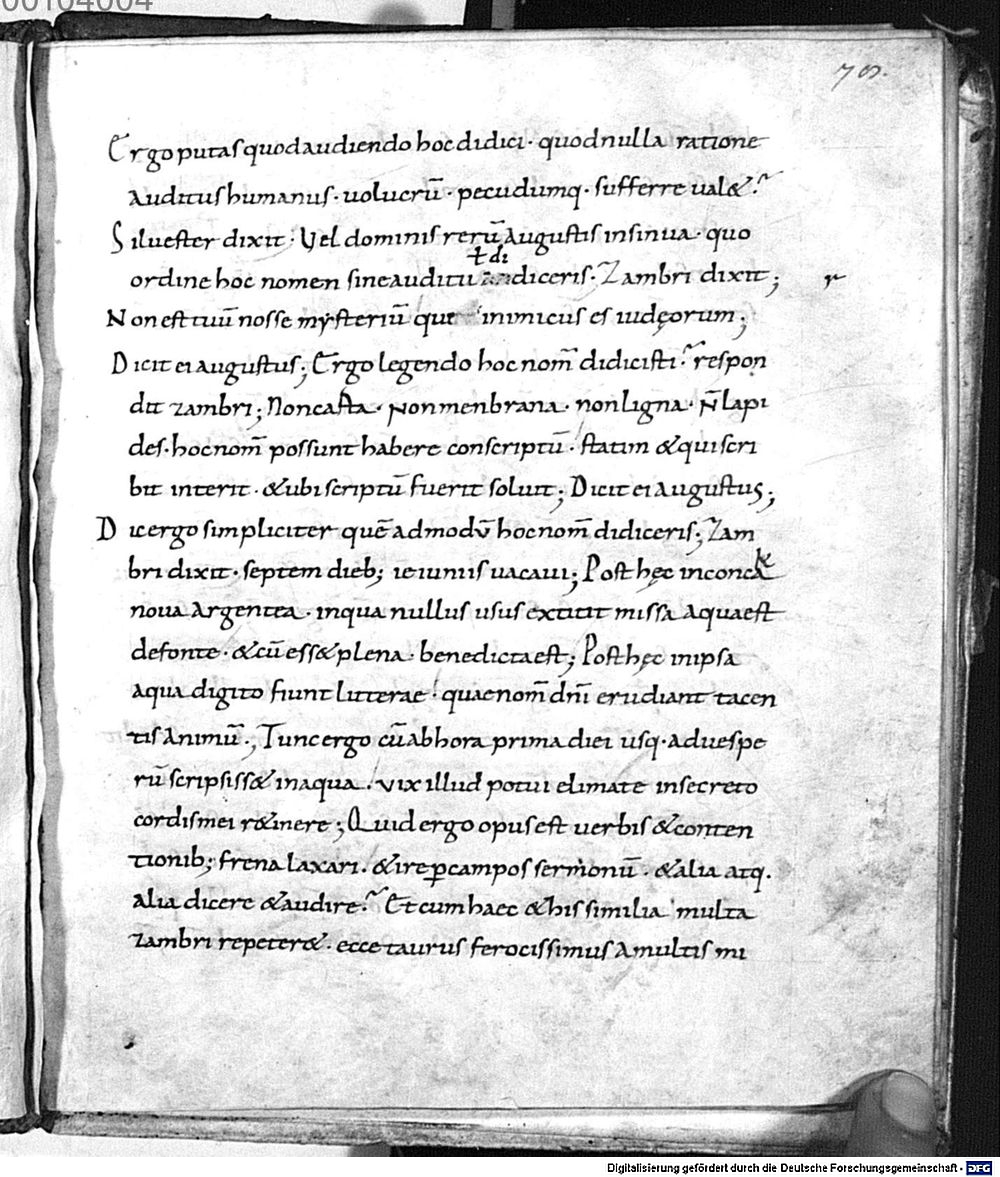 00104004
70.
Ergo putas quod audiendo hoc didici · quod nulla ratione
Auditus humanus · uolucrū · pecudumq· sufferre ual&?
Siluester dixit · Vel dominis rerū Augustis insinua · quo
ł di
ordine hoc nomen sine auditu diceris · Zambri dixit; r
Non est tuū nosse mysteriū que inimicus es iudęorum;
Dicit ei augustus; Ergo legendo hoc nom̄ didicisti? respon
dit zambri; Non casta · Non menbrana · non ligna · N̄ lapi
des · hoc nom̄ possunt habere conscriptū · statim & qui scri
bit interit · & ubi scriptū fuerit soluit; Dicit ei Augustus;
Dic ergo simpliciter quē ad modū hoc nom̄ didiceris; Zam
bri dixit · septem dieb; ieiuniis uacaui; Post hęc in conca
noua Argentea · in qua nullus usus extitit missa aqua est
de fonte · & cū ess& plena · benedicta est; Post hęc in ipsa
aqua digito fiunt litterae · quae nom̄ dn̄i erudiant tacen
tis Animū; Tunc ergo cū ab hora prima diei usq· ad uespe
rū scripsiss& in aqua · vix illud potui elimate in secreto
cordis mei r&inere; Quid ergo opus est uerbis & conten
tionib; frena laxari · & ire ꝑ campos sermonū · & alia atq·
alia dicere & audire? Et cum haec & his similia multa
zambri repeter& · ecce taurus ferocissimus A multis mi
Digitalisierung gefördert durch die Deutsche Forschungsgemeinschaft - DFG